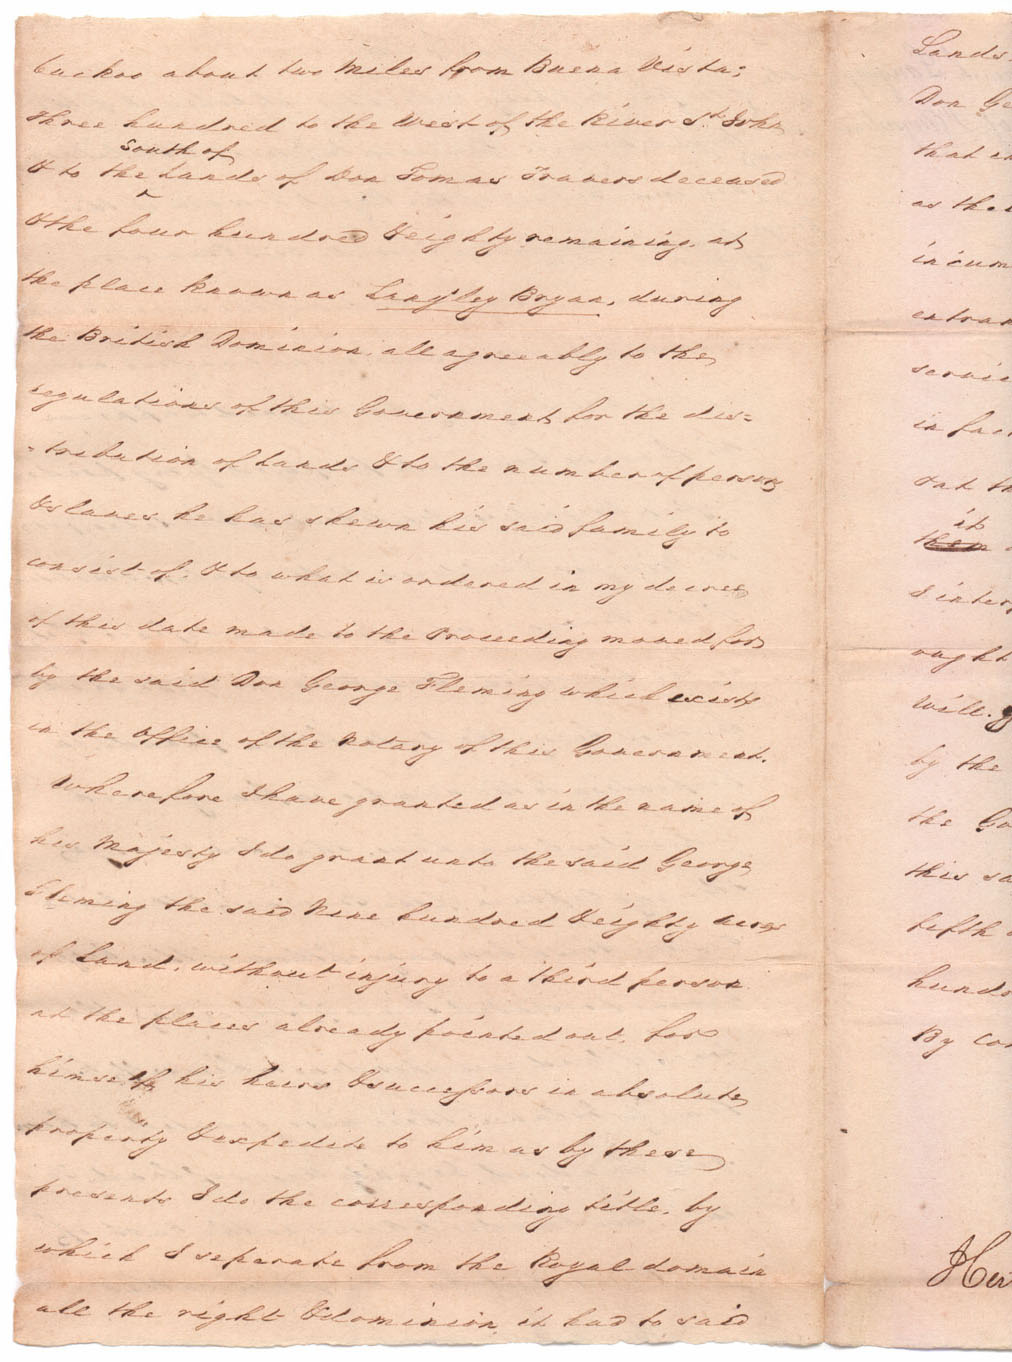 Cuckoo about two Miles from Buena Vista;
Three hundred to the West of the River St. John
south of
& to the Lands of Don Tomas Travers deceased
& the four hundred & eighty remaining at
the place known as Langley Bryan, during
the British Dominion, all agreeably to the
regulations of this Government for the dis=
-tribution of Lands & to the number of persons
& slaves he has shewn his said family to
consist of, & to what is ordered in my decree
of this date made to the Proceeding moved for
by the said Don George Fleming which exists
in the Office of the Notary of this Government.
Wherefore I have granted as in the name of
his Majesty I do grant unto the said George
Fleming the said Nine hundred & eighty acres
of Land, without injury to a third person
at the places already pointed out, for
himself his heirs & successors in absolute
property & expedite to him as by these
presents I do the corresponding title, by
which I seperate from the Royal domain
all the right & dominion it had to said
Lands
Don Ge
that
as the
incum
entran
servic
in fac
& at th
it
them
I inter
ought
Will.
by the
the Go
this sa
fifth
hund
By Co
Her